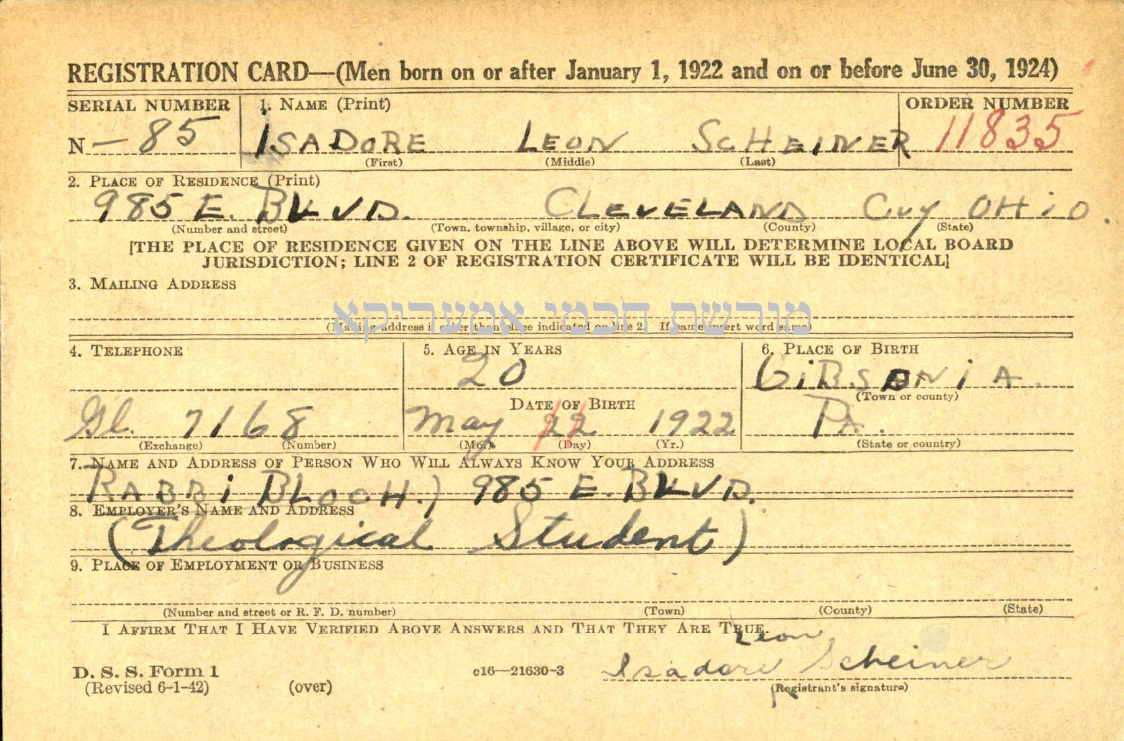 REGISTRATION CARD—(Men born on or after January 1, 1922 and on or before June 30, 1924)
SERIAL NUMBER 1. NAME (Print) ORDER NUMBER
N — 85 ISADORE LEON SCHEINER 11835
(First) (Middle) (Last)
2. PLACE OF RESIDENCE (Print)
985 E. BLVD. CLEVELAND CUY OHIO.
(Number and street) (Town, township, village, or city) (County) (State)
[THE PLACE OF RESIDENCE GIVEN ON THE LINE ABOVE WILL DETERMINE LOCAL BOARD
JURISDICTION; LINE 2 OF REGISTRATION CERTIFICATE WILL BE IDENTICAL]
3. MAILING ADDRESS
מורשת חכמי אמעריקא
(Mailing address if other than place indicated on line 2. If same insert word same)
4. TELEPHONE 5. AGE IN YEARS 6. PLACE OF BIRTH
20 GIBSONIA.
(Town or county)
DATE OF BIRTH
Gl. 7168 May 22 1922 PA.
(Exchange) (Number) (Mo.) (Day) (Yr.) (State or country)
7. NAME AND ADDRESS OF PERSON WHO WILL ALWAYS KNOW YOUR ADDRESS
RABBI BLOCH.) 985 E. BLVD.
8. EMPLOYER'S NAME AND ADDRESS
(Theological Student)
9. PLACE OF EMPLOYMENT OR BUSINESS
(Number and street or R. F. D. number) (Town) (County) (State)
I AFFIRM THAT I HAVE VERIFIED ABOVE ANSWERS AND THAT THEY ARE TRUE.
Leon
Isadore Scheiner
D. S. S. Form 1 c16—21630-3
(Revised 6-1-42) (over) (Registrant's signature)